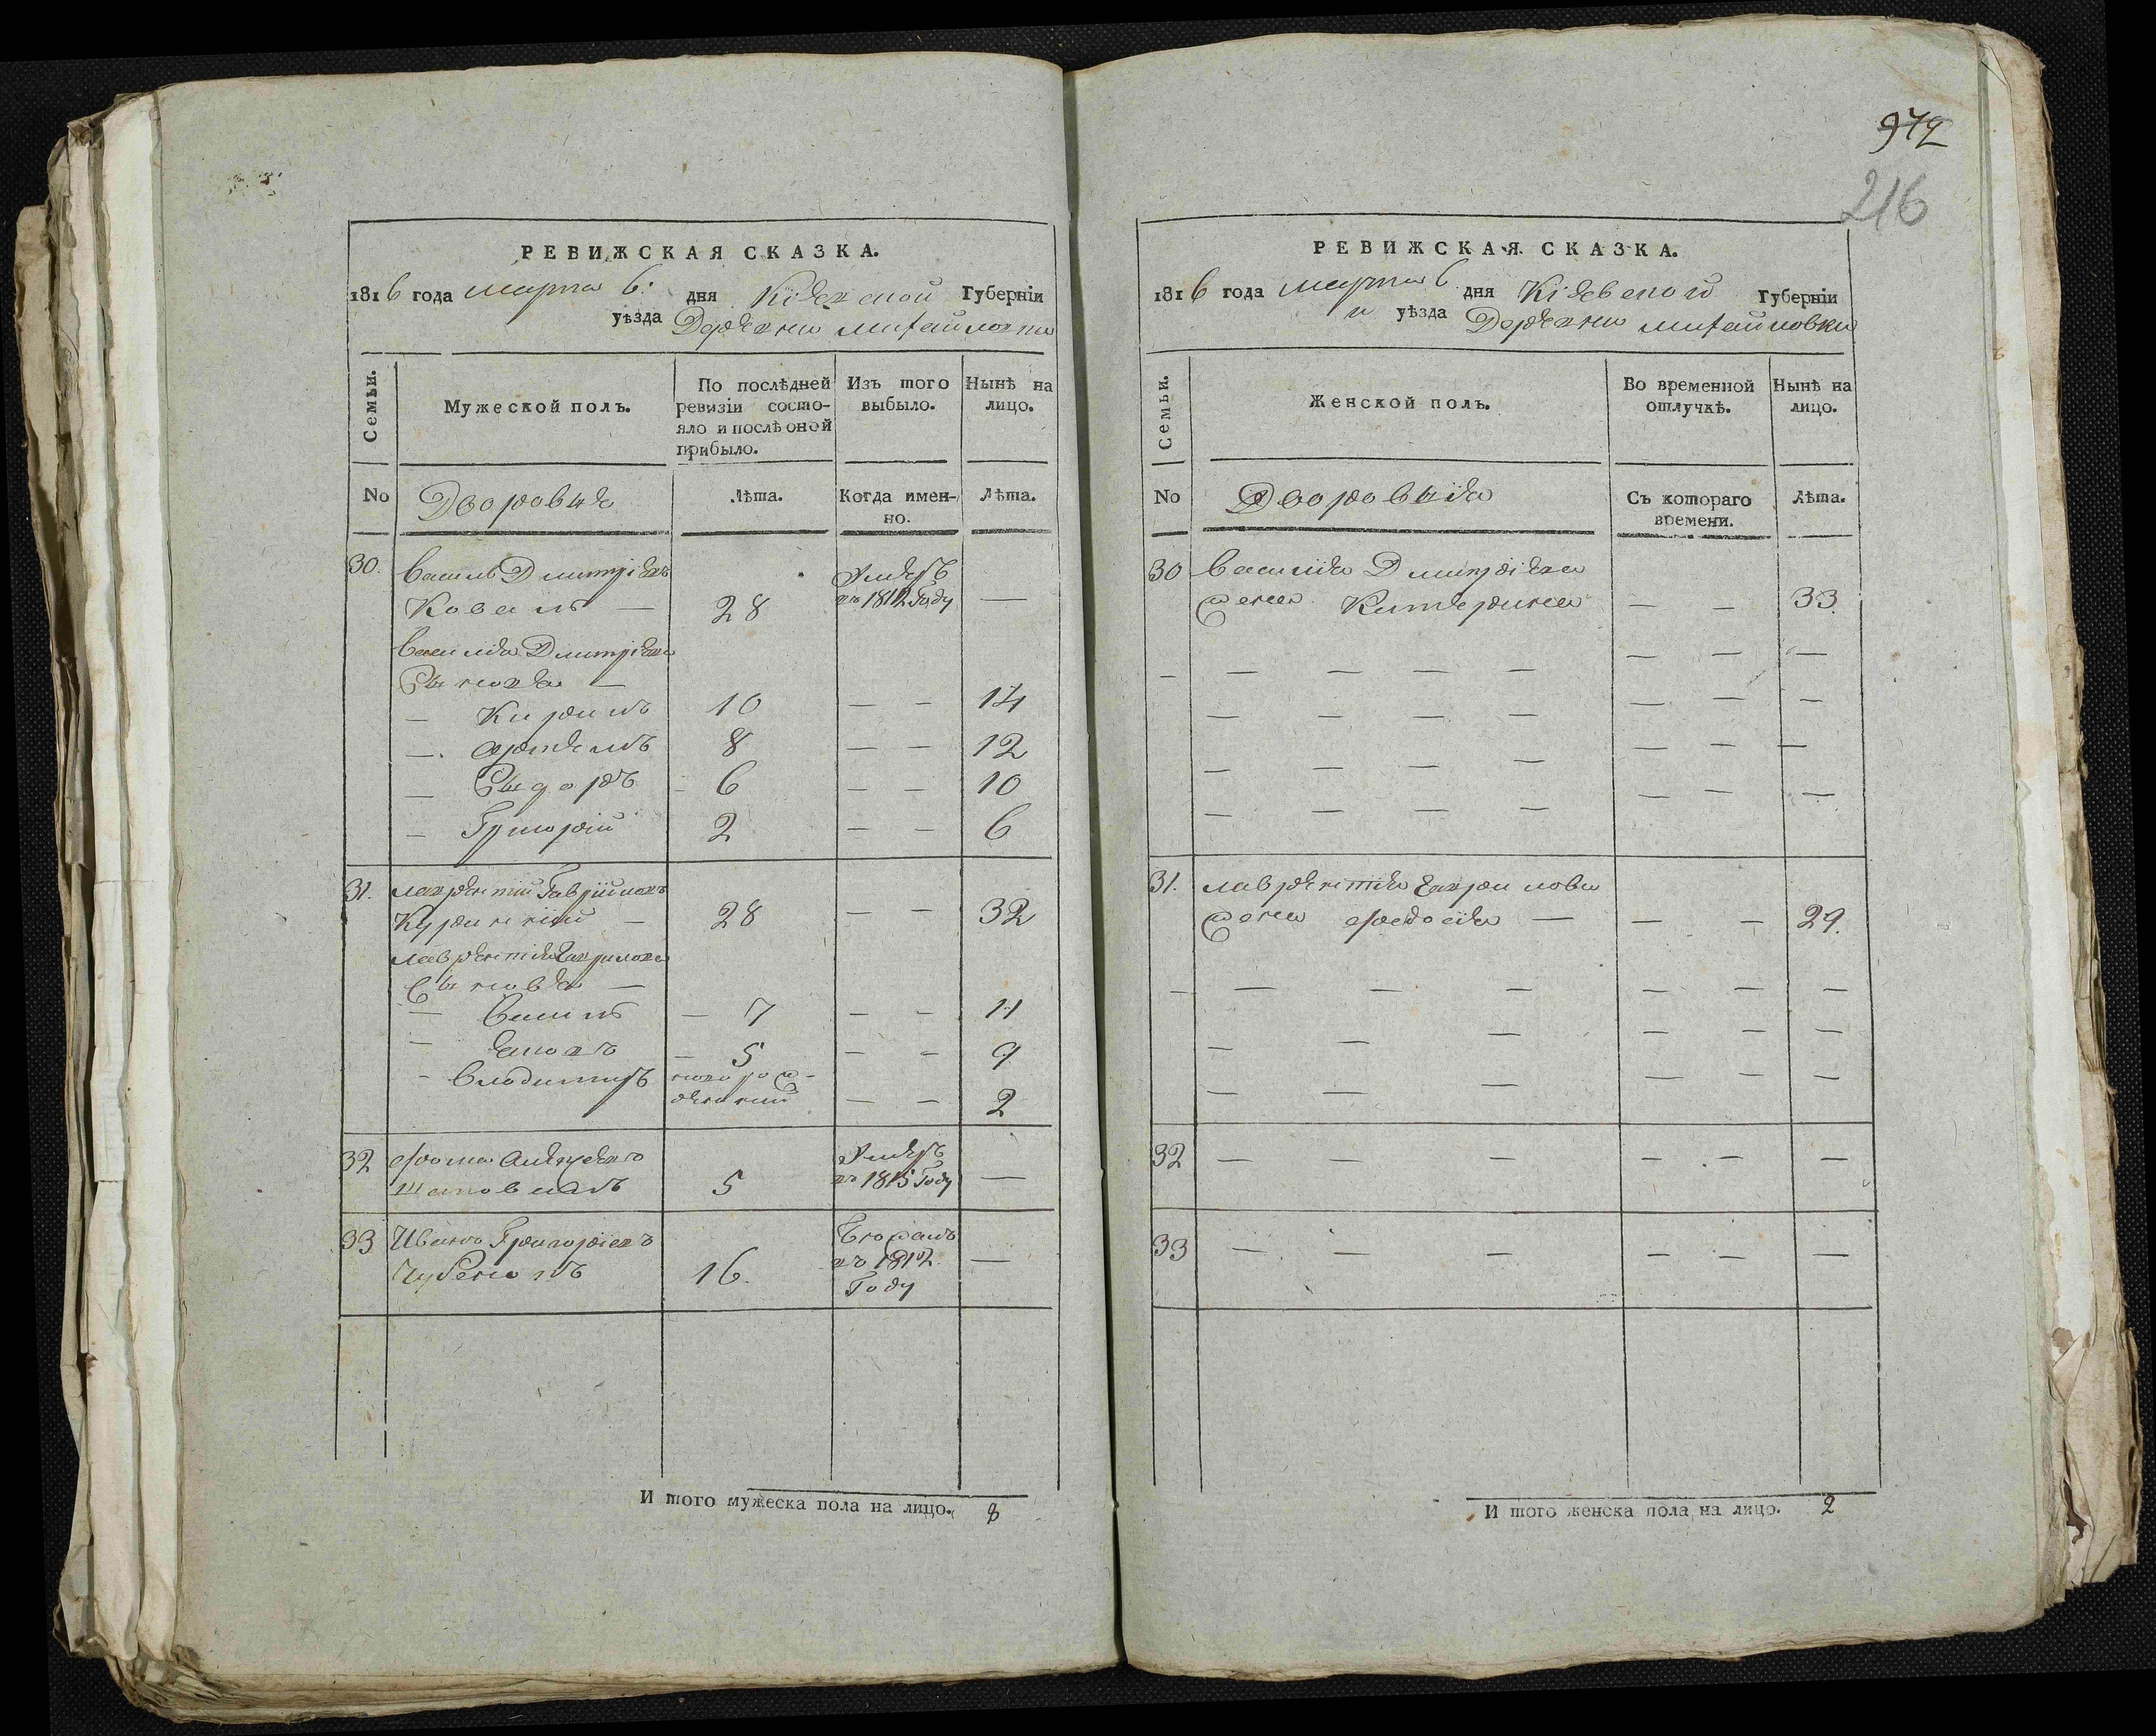 РЕВИЖСКАЯ СКАЗКА.
1816 года марта 6: дня Кіевской Губерніи
уѣзда Деревни михайловки
Семьи.
Мужеской полъ.
По послѣдней ревизіи состо-
яло и послѣ оной
прибыло.
Изъ того
выбыло.
Нынѣ на
лицо.
No
Дворовые
Лѣта.
Когда имен-
но.
Лѣта.
30. василь Дмитріевъ умеръ
Коваль — 28 въ 1812 Году —
василія Дмитріева
Сыновья —
— Кирилъ 10 — — 14
— артемъ 8 — — 12
— Сыдоръ 6 — — 10
— Григорій 2 — — 6
31. лаврентій Гавріиловъ
— 28 — — 32
лаврентія гаврилова
Сыновья —
— василь — 7 — — 11
— — 5 — — 9
— владимиръ новорож-
денный — — 2
32 умеръ
5 въ 1815 Году —
33 Иванъ Григоріевъ Бѣжалъ
16. въ 1812
Году —
И того мужеска пола на лицо. 8
972
216
РЕВИЖСКАЯ СКАЗКА.
1816 года марта 6 дня Кіевской Губерніи
уѣзда Деревни михайловки
Семьи.
Женской полъ.
Во временной
отлучкѣ.
Нынѣ на
лицо.
No
Дворовыія
Съ котораго
времени.
Лѣта.
30 василія Дмитріева
жена Катерина — — 33.
31. лаврентія гаврилова
жена федосія — — — 29.
32 — — — — — —
33 — — — — — —
И того женска пола на лицо. 2